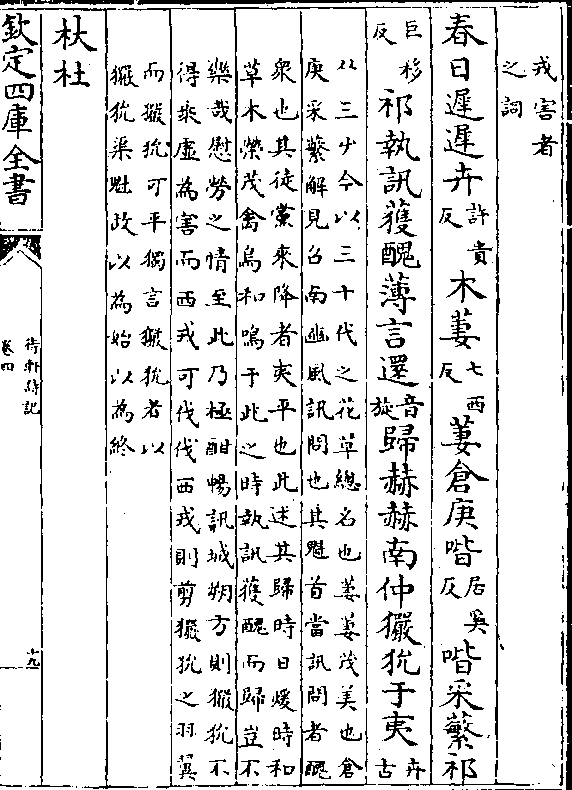 戎害者
之詞
春日遲遲卉許貴反木萋七西反萋倉庚喈居奚反喈采蘩祁
巨移反祁執訊獲醜薄言還音旋歸赫赫南仲玁狁于夷卉古
从三屮今以三十代之花草總名也萋萋茂美也倉
庚采蘩解見召南豳風訊問也其魁首當訊問者醜
衆也其徒黨來降者夷平也此述其歸時日煖時和
草木榮茂禽鳥和鳴于此之時執訊獲醜而歸豈不
樂哉慰勞之情至此乃極酣暢訊城朔方則玁狁不
得乘虛為害而西戎可伐伐西戎則剪玁狁之羽翼
而玁狁可平獨言玁狁者以
玁狁渠魁故以為始以為終
杕杜
欽定四庫全書
待軒詩記
卷四
十九